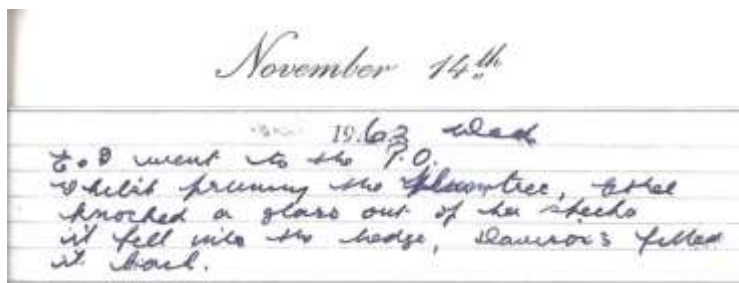 November 14th
1962 Wed
E. D went to the P.O.
Whilst pruning the plumtree, Ethel
knocked a glass out of her specks
it fell into the hedge, fitted
it back.